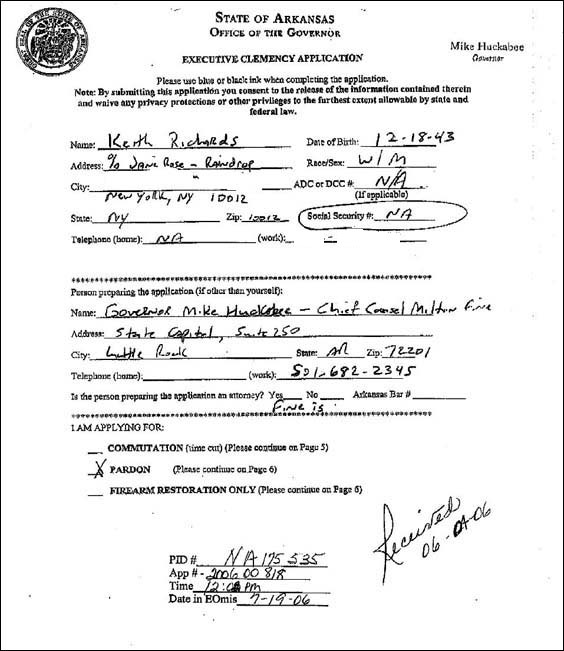 STATE OF ARKANSAS
OFFICE OF THE GOVERNOR
Mike Huckabee
Governor
EXECUTIVE CLEMENCY APPLICATION
Please use blue or black ink when completing the application.
Note: By submitting this application you consent to the release of the information contained therein
and waive any privacy protections or other privileges to the furthest extent allowable by state and
federal law.
Name: Keith Richards Date of Birth: 12-18-43
Address: c/o Jane Rose - Raindrop Race/Sex: W/M
City: " ADC or DCC #: N/A
New York, NY 10012 (if applicable)
State: NY Zip: 10012 Social Security #: NA
Telephone (home): NA (work): - -
********************************************************
Person preparing the application (if other than yourself):
Name: Governor Mike Huckabee - Chief Counsel Milton Fine
Address: State Capitol, Suite 250
City: Little Rock State: AR Zip: 72201
Telephone (home): (work): 501-682-2345
Is the person preparing the application an attorney? Yes No Arkansas Bar #
Fine is
********************************************************
I AM APPLYING FOR:
COMMUTATION (time cut) (Please continue on Page 5)
X PARDON (Please continue on Page 6)
FIREARM RESTORATION ONLY (Please continue on Page 6)
Received
PID # NA 175535
App # - 2006 00 818
Time PM
Date in EOmis 7-19-06